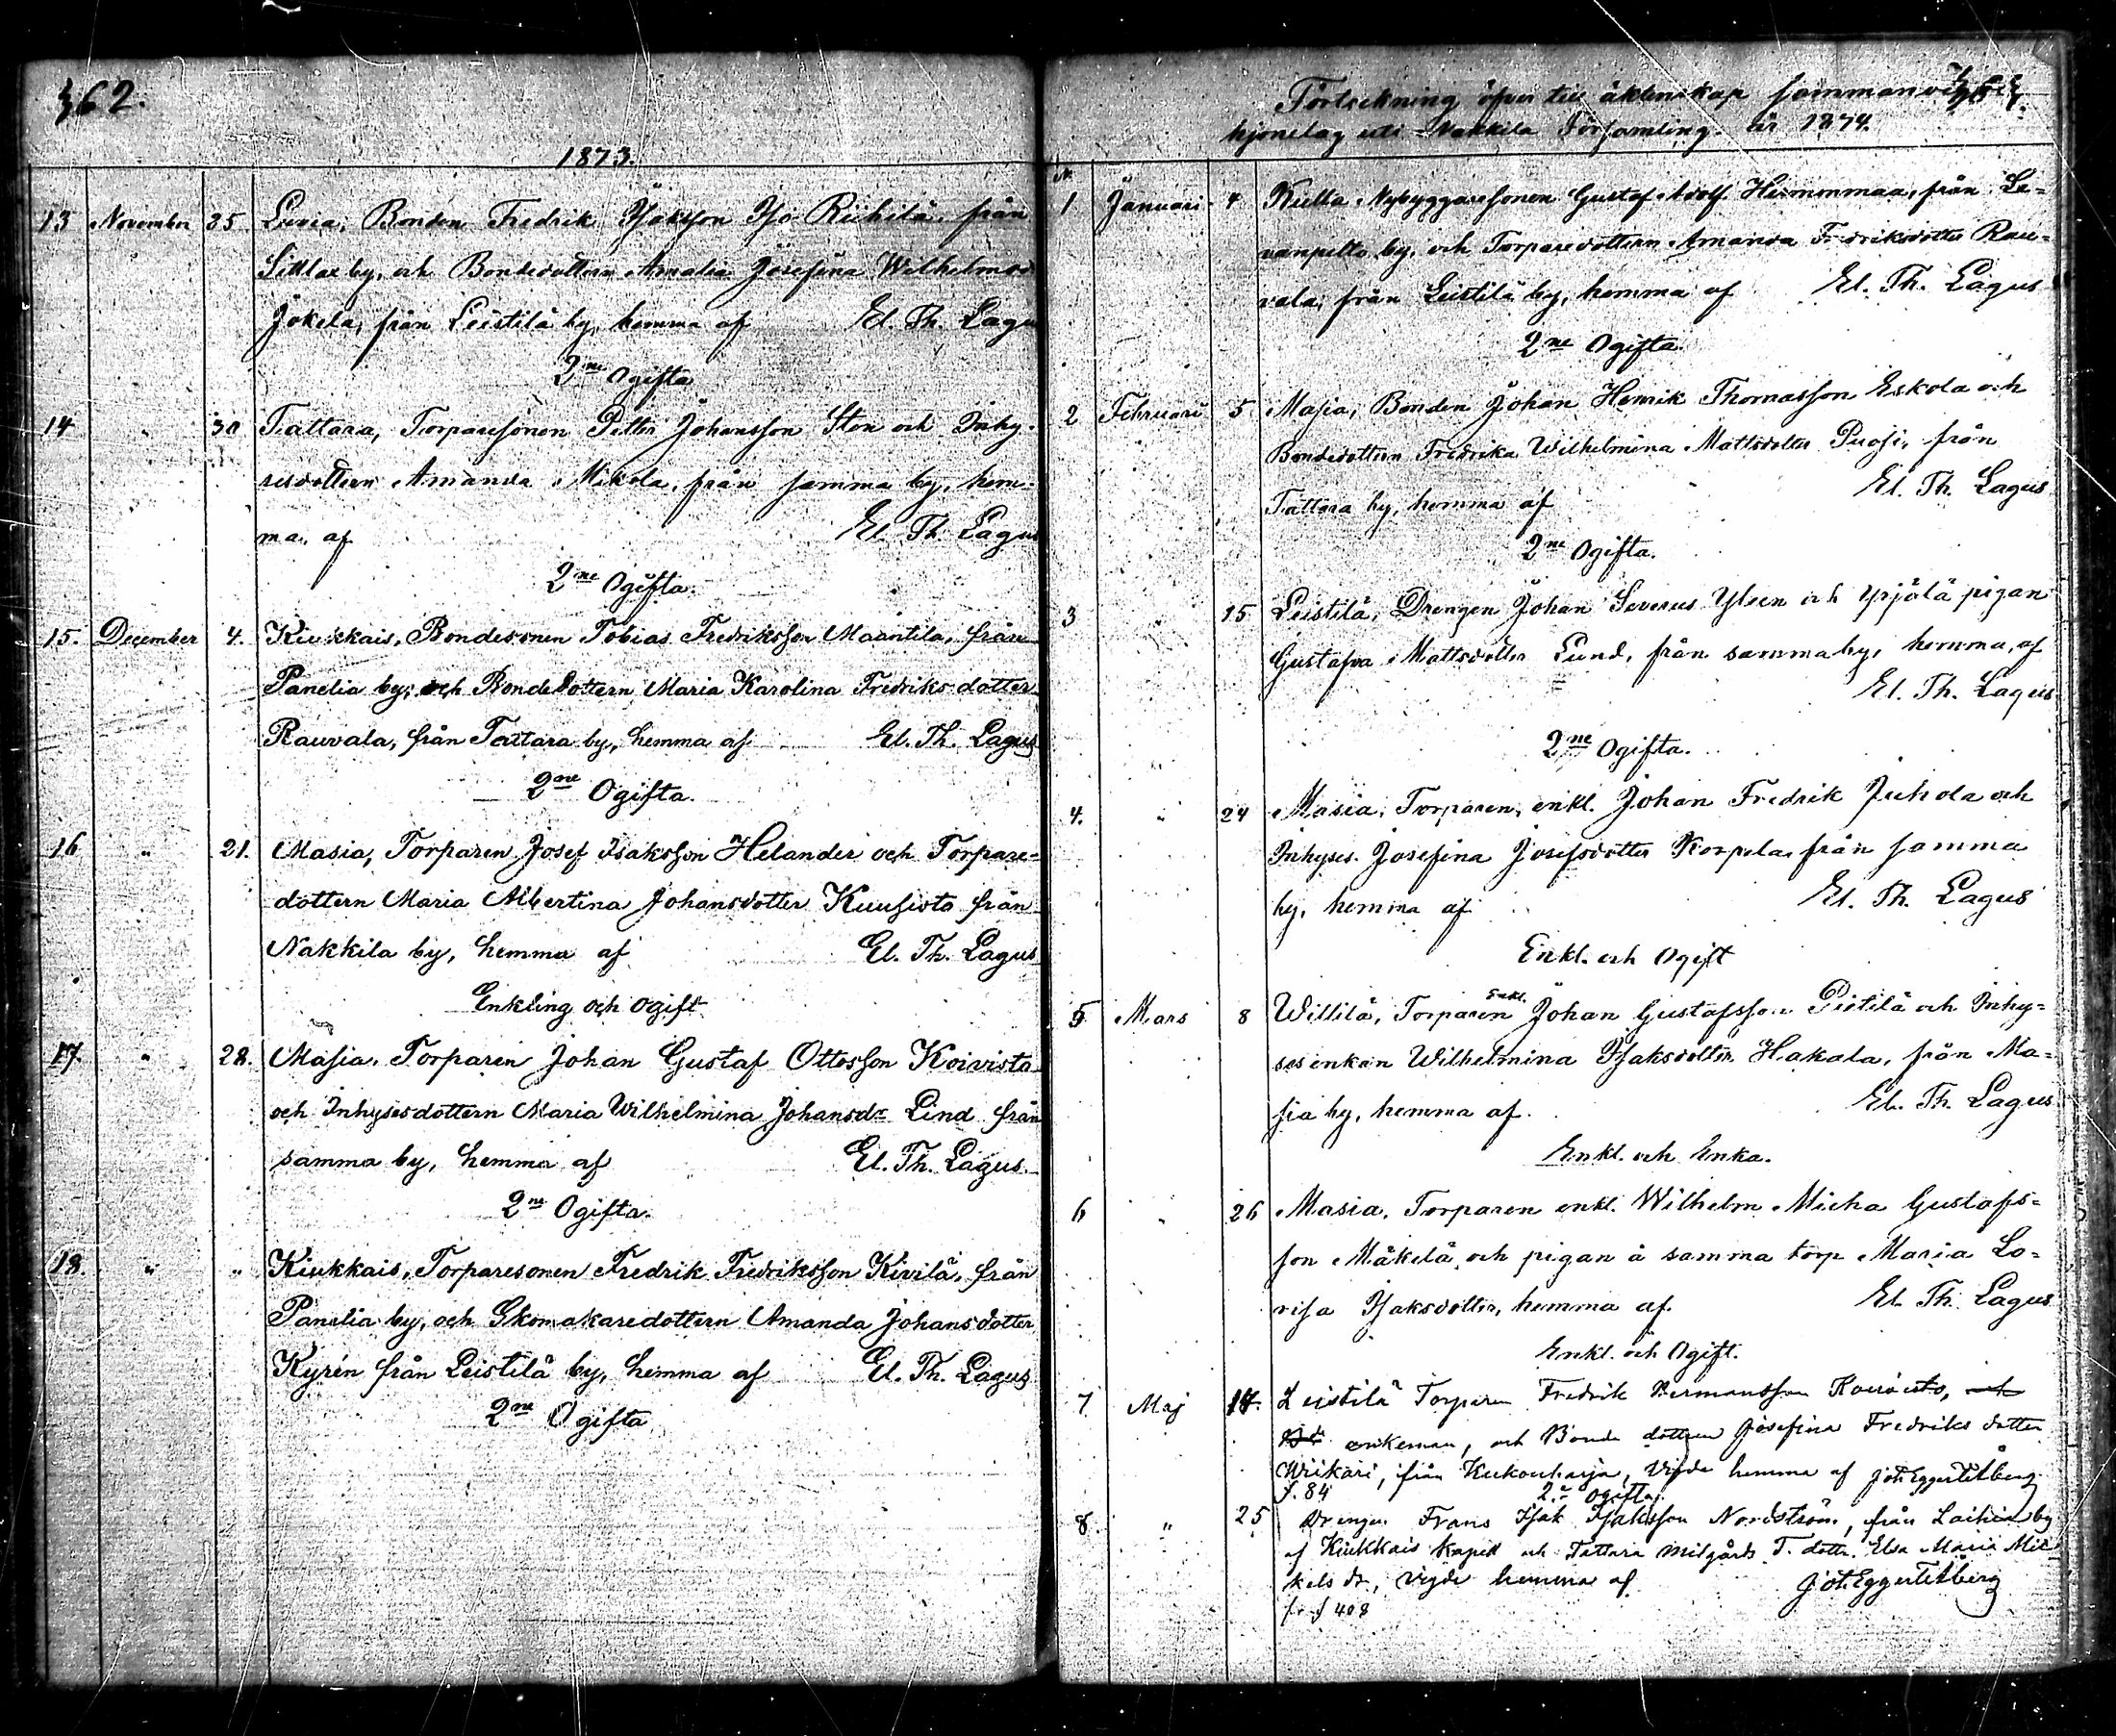 462.
1873.
13 November 25 Luvia, Bonden Fredrik Isaksson Iso Riihilä, från
Sittlax by, och Bondedottern Amalia Josefina Wilhelmsd
Jokela, från Leistilä by, hemma af El. Th. Lagus
2ne Ogifta
14 " 30 Tattara, Torparesonen Petter Johansson Sten och Inhy-
sesdottern Amanda Mikola, från samma by, hem-
ma, af El. Th. Lagus
2ne Ogifta.
15. December 4. Kiukkais, Bondesonen Tobias Fredriksson Maantila, från
Panelia by, och Bondedottern Maria Karolina Fredriksdotter
Rauvala, från Tattara by, hemma af El. Th. Lagus
2ne Ogifta.
16 " 21. Masia, Torparen Josef Isaksson Helander och Torpare-
dottern Maria Albertina Johansdotter Kuusisto från
Nakkila by, hemma af El. Th. Lagus
Enkling och ogift
17. " 28. Masia, Torparen Johan Gustaf Ottosson Koivisto
och Inhysesdottern Maria Wilhelmina Johansdr Lind från
samma by, hemma af El. Th. Lagus.
2ne Ogifta.
18. " " Kiukkais, Torparesonen Fredrik Fredriksson Kivilä, från
Panelia by, och Skomakaredottern Amanda Johansdotter
Kyrén från Leistilä by, hemma af El. Th. Lagus
2ne Ogifta
Förteckning öfver till äktenskap sammanvigde
hjonelag uti Nakkila Församling år 1874.
N.
1 Januari 4 Kulla Nybyggaresonen Gustaf Adolf Hemmmaa, från Le-
vanpelto by, och Torparedottern Amanda Fredriksdotter Rau-
vala, från Leistilä by, hemma af El. Th. Lagus
2ne Ogifta.
2 Februari 5 Masia, Bonden Johan Henrik Thomasson Eskola och
Bondedottern Fredrika Wilhelmina Mattsdotter Puosi, från
Tattara by, hemma af El. Th. Lagus
2ne Ogifta.
3 " 15 Leistilä, Drengen Johan Severus Ylsen och Ypjälä pigan
Gustafva Mattsdotter Lund, från samma by, hemma, af
El. Th. Lagus
2ne Ogifta.
4. " 24 Masia, Torparen, enkl. Johan Fredrik Juhola och
Inhyses. Josefina Josefsdotter Korpela från samma
by, hemma af El. Th. Lagus
Enkl. och Ogift
5 Mars 8 Willilä, Torparen Enkl. Johan Gustafsson Pietilä och Inhy-
sesenkan Wilhelmina Isaksdotter Hakala, från Ma-
sia by, hemma af. El. Th. Lagus
Enkl. och Enka.
6 " 26 Masia, Torparen enkl. Wilhelm Micha Gustafs-
son Mäkelä och pigan å samma torp Maria Lo-
visa Isaksdotter, hemma af El. Th. Lagus
Enkl. och Ogift.
7 Maj 17. Leistilä Torparen Fredrik Hermansson Koivisto, och
enkeman, och Bonde dottren Josefina Fredriks dotter
Wiikari, från Kukonharja, Vigde hemma af Joh Eggert Håberg
f. 84 2ne Ogifta
8. " 25 Drengen Frans Isak Isaksson Nordström, från Laihia by
af Kiukkais Kapell och Tattara Milgårds T. dottr. Elsa Maria Mic-
kels dr, vigde hemma af Joh Eggert Håberg
fr. f 408